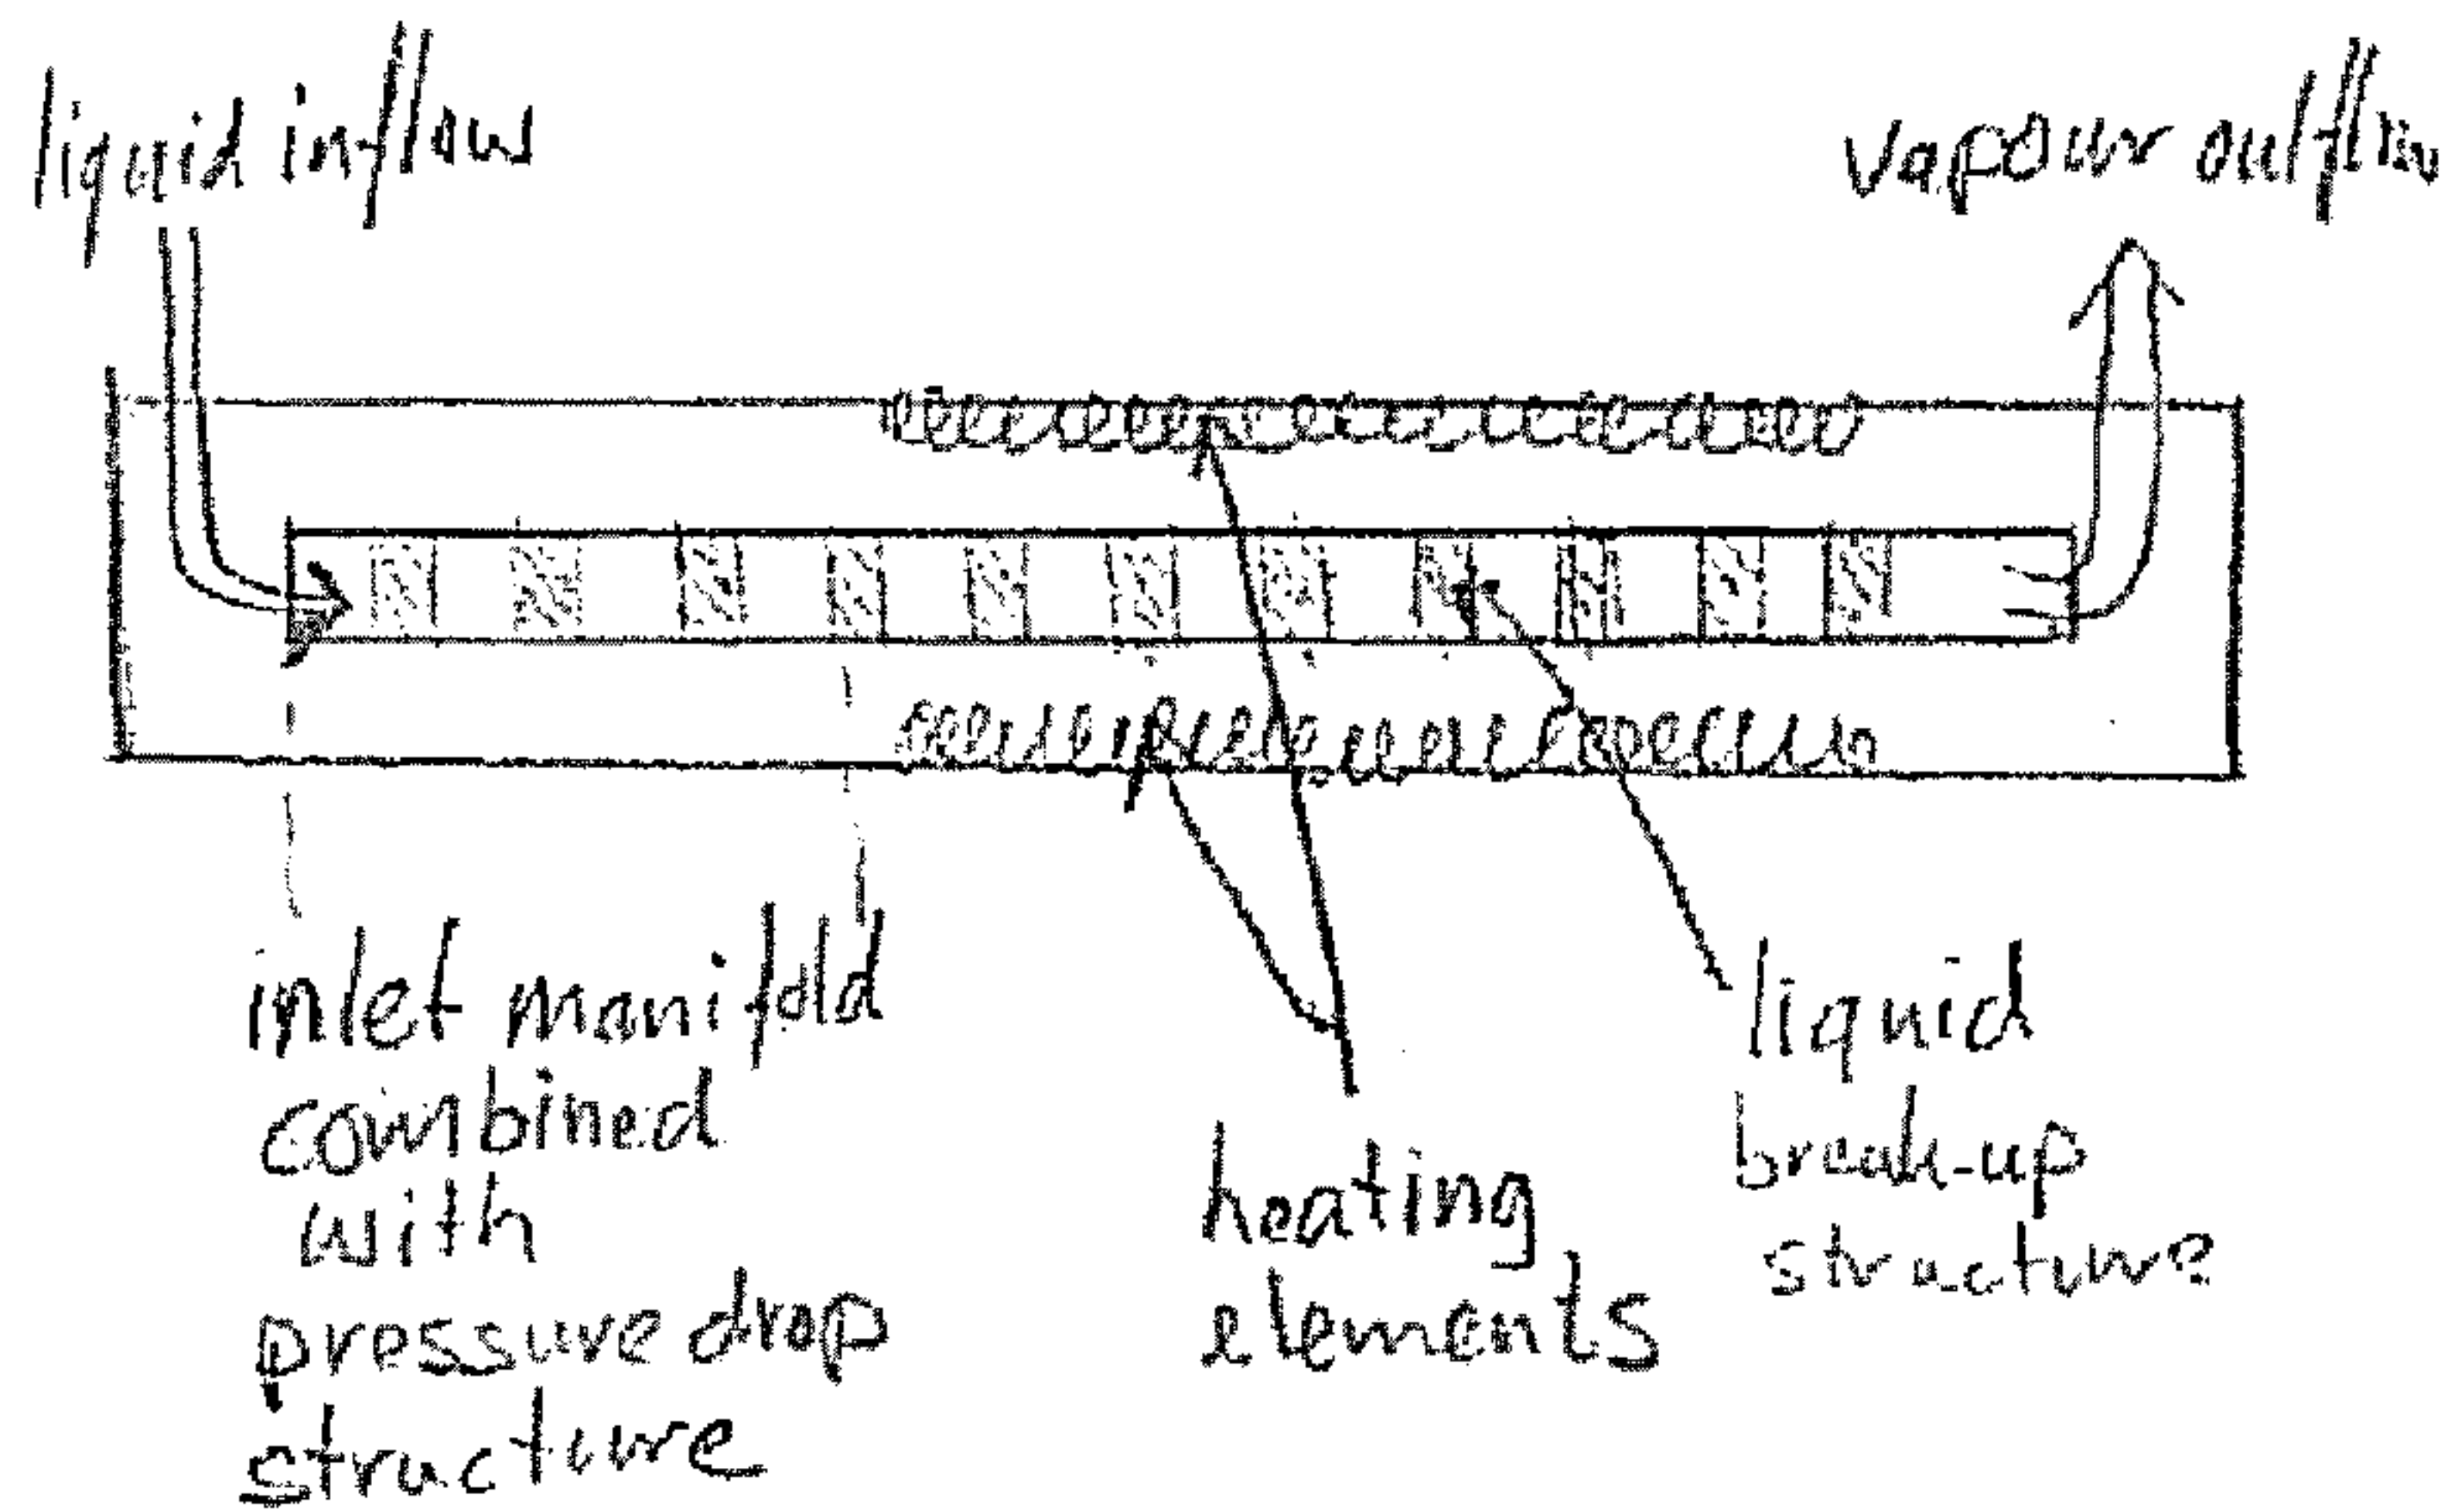 liquid inflow
vapour outflow
inlet manifold
combined
with
pressure drop
structure
heating
elements
liquid
break-up
structure?